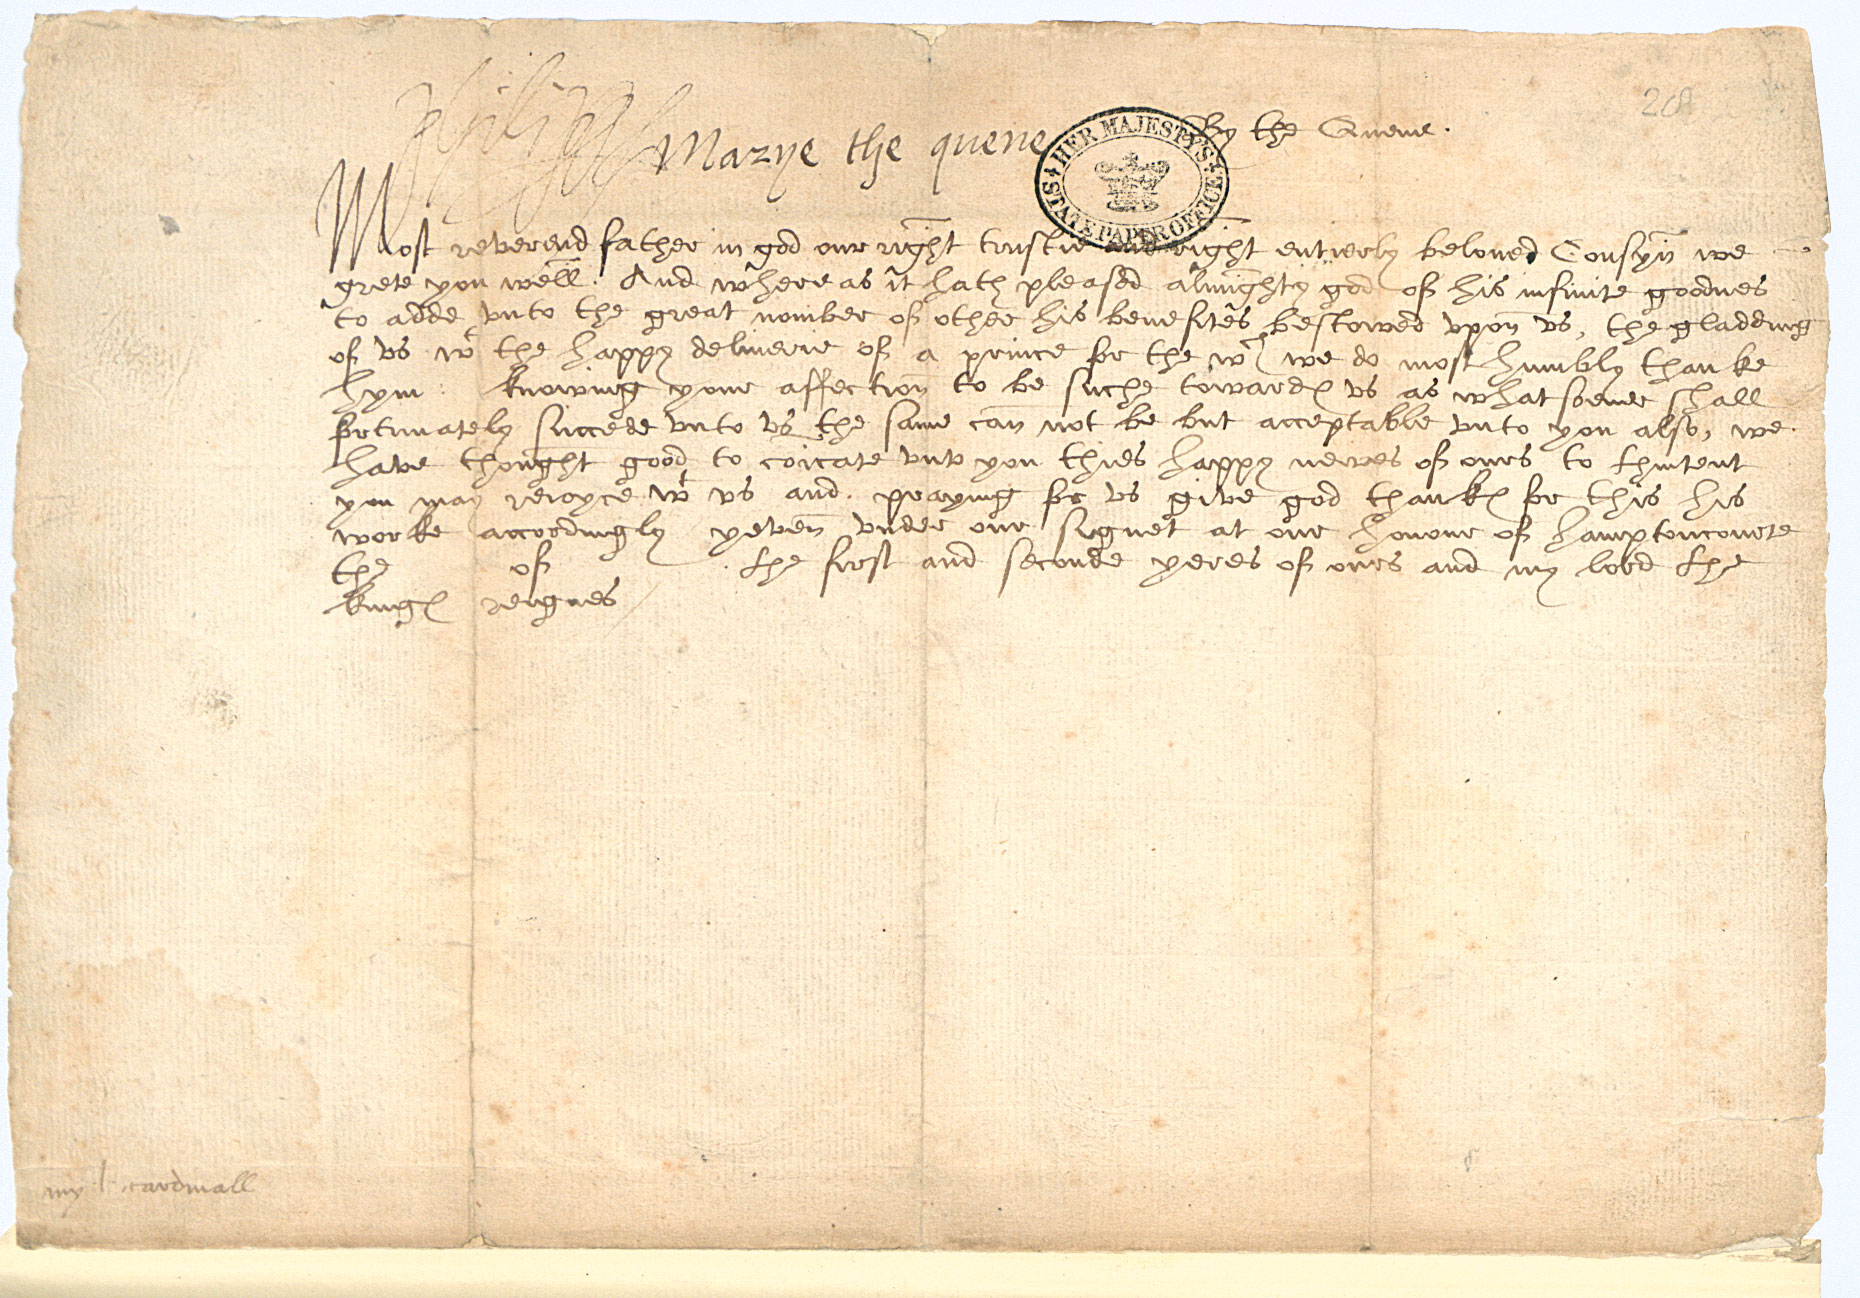 208
Philipp
Marye the quene
By the Quene.
HER MAJESTY'S STATE PAPER OFFICE
Most reverend father in god our right trustie and right entierly beloved Cousyn we
grete you well. And where as it hath pleased almighty god of his infinite goodnes
to adde vnto the great nomber of other his benefites bestowed vpon vs, the gladding
of vs wt the happy deliverie of a prince for the wch we do most humbly thanke
hym. knowing your affection to be suche towardes vs as whatsoever shall
fortunately succede vnto vs the same can not be but acceptable vnto you also, we
have thought good to coicate vnto you thies happy newes of ours to thintent
you may reioyce wt vs and praying for vs give god thankes for this his
worke accordingly yeven vnder our signet at our honour of hamptoncourte
the of the first and seconde yeres of ours and my lord the
kinges reignes
my l cardinall